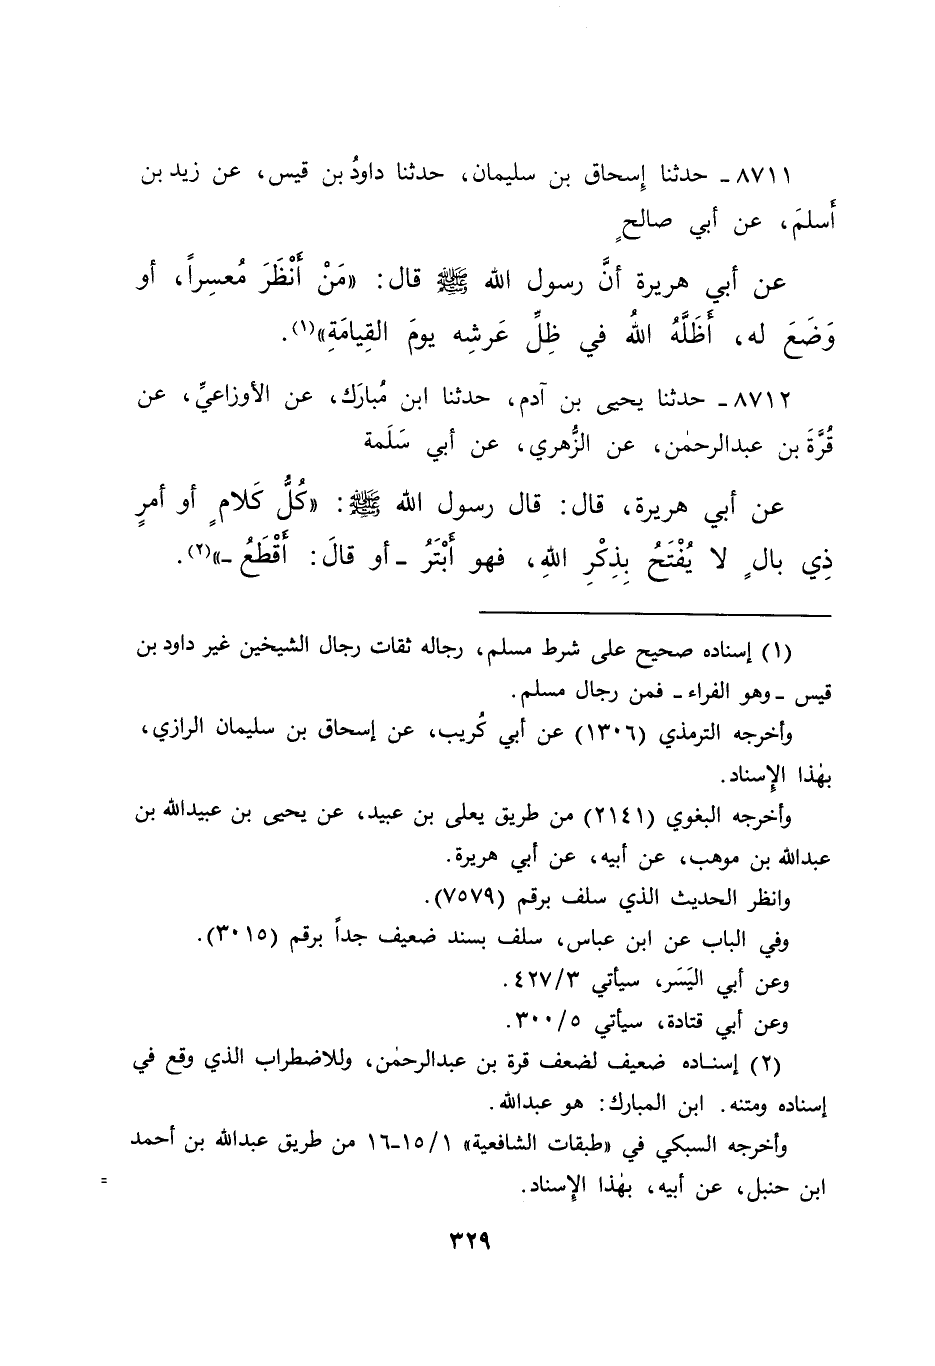 ٨٧١١ ـ حدثنا إسحاق بن سليمان، حدثنا داودُ بن قيس، عن زيد بن
أَسلمَ، عن أبي صالحٍ
عن أبي هريرة أنَّ رسول الله ﷺ قال: «مَنْ أَنْظَرَ مُعسِراً، أو
وَضَعَ له، أَظَلَّهُ اللهُ في ظِلِّ عَرشِه يومَ القِيامَةِ»(١).
٨٧١٢ ـ حدثنا يحيى بن آدم، حدثنا ابن مُبارَك، عن الأوزاعيِّ، عن
قُرَّةَ بن عبدالرحمٰن، عن الزُّهري، عن أبي سَلَمة
عن أبي هريرة، قال: قال رسول الله ﷺ: «كُلُّ كَلامٍ أو أمرٍ
ذِي بالٍ لا يُفْتَحُ بِذِكْرِ اللهِ، فهو أَبْتَرُ ـ أو قالَ: أَقْطَعُ ـ»(٢).
(١) إسناده صحيح على شرط مسلم، رجاله ثقات رجال الشيخين غير داود بن
قيس ـ وهو الفراء ـ فمن رجال مسلم.
وأخرجه الترمذي (١٣٠٦) عن أبي كُريب، عن إسحاق بن سليمان الرازي،
بهٰذا الإسناد.
وأخرجه البغوي (٢١٤١) من طريق يعلى بن عبيد، عن يحيى بن عبيدالله بن
عبدالله بن موهب، عن أبيه، عن أبي هريرة.
وانظر الحديث الذي سلف برقم (٧٥٧٩).
وفي الباب عن ابن عباس، سلف بسند ضعيف جداً برقم (٣٠١٥).
وعن أبي اليَسَر، سيأتي ٤٢٧/٣.
وعن أبي قتادة، سيأتي ٣٠٠/٥.
(٢) إسناده ضعيف لضعف قرة بن عبدالرحمٰن، وللاضطراب الذي وقع في
إسناده ومتنه. ابن المبارك: هو عبدالله.
وأخرجه السبكي في «طبقات الشافعية» ١٥/١-١٦ من طريق عبدالله بن أحمد
ابن حنبل، عن أبيه، بهٰذا الإسناد. =
٣٢٩